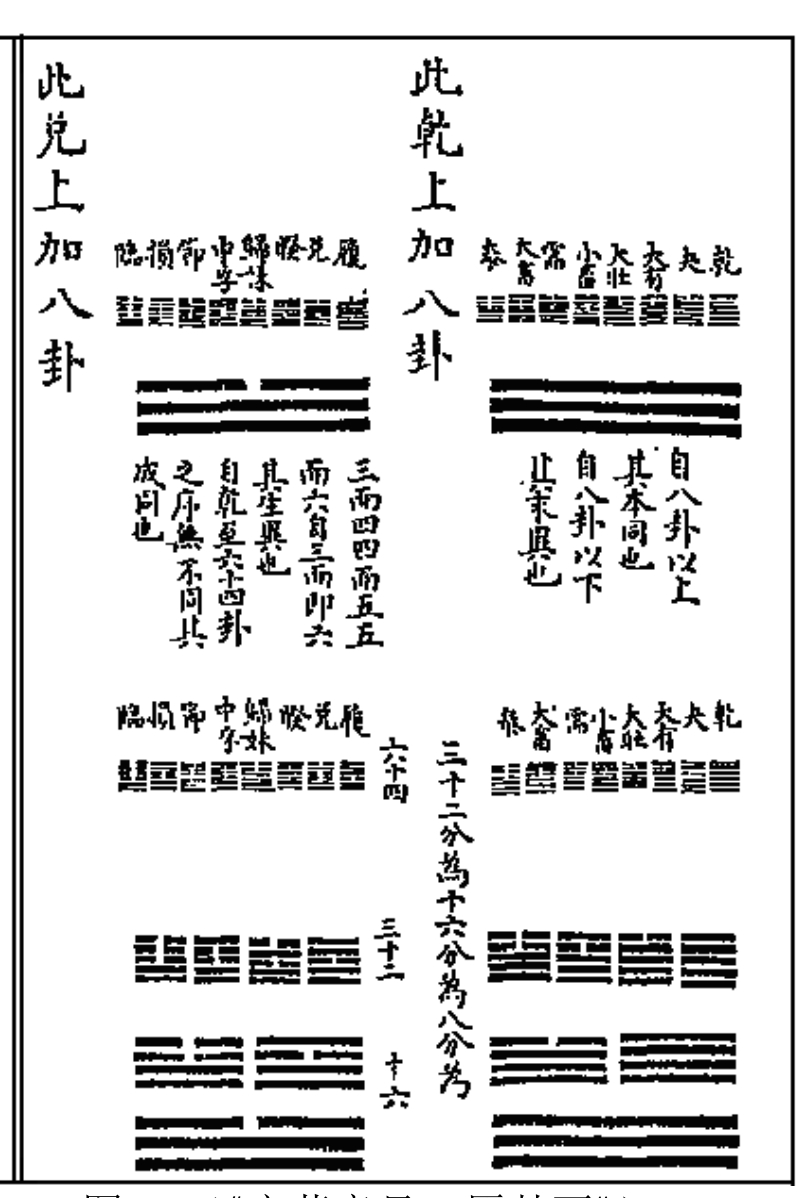 乾 夬 大有 大壯 小畜 需 大畜 泰
自八卦以上
其本同也
自八卦以下
其末異也
乾 夬 大有 大壯 小畜 需 大畜 泰
此乾上加八卦
三十二分為十六分為八分為
六十四
三十二
十六
履 兌 睽 歸妹 中孚 節 損 臨
三而四四而五五
而六自三而即六
其生異也
自乾至六十四卦
之序無不同其
成同也
履 兌 睽 歸妹 中孚 節 損 臨
此兌上加八卦